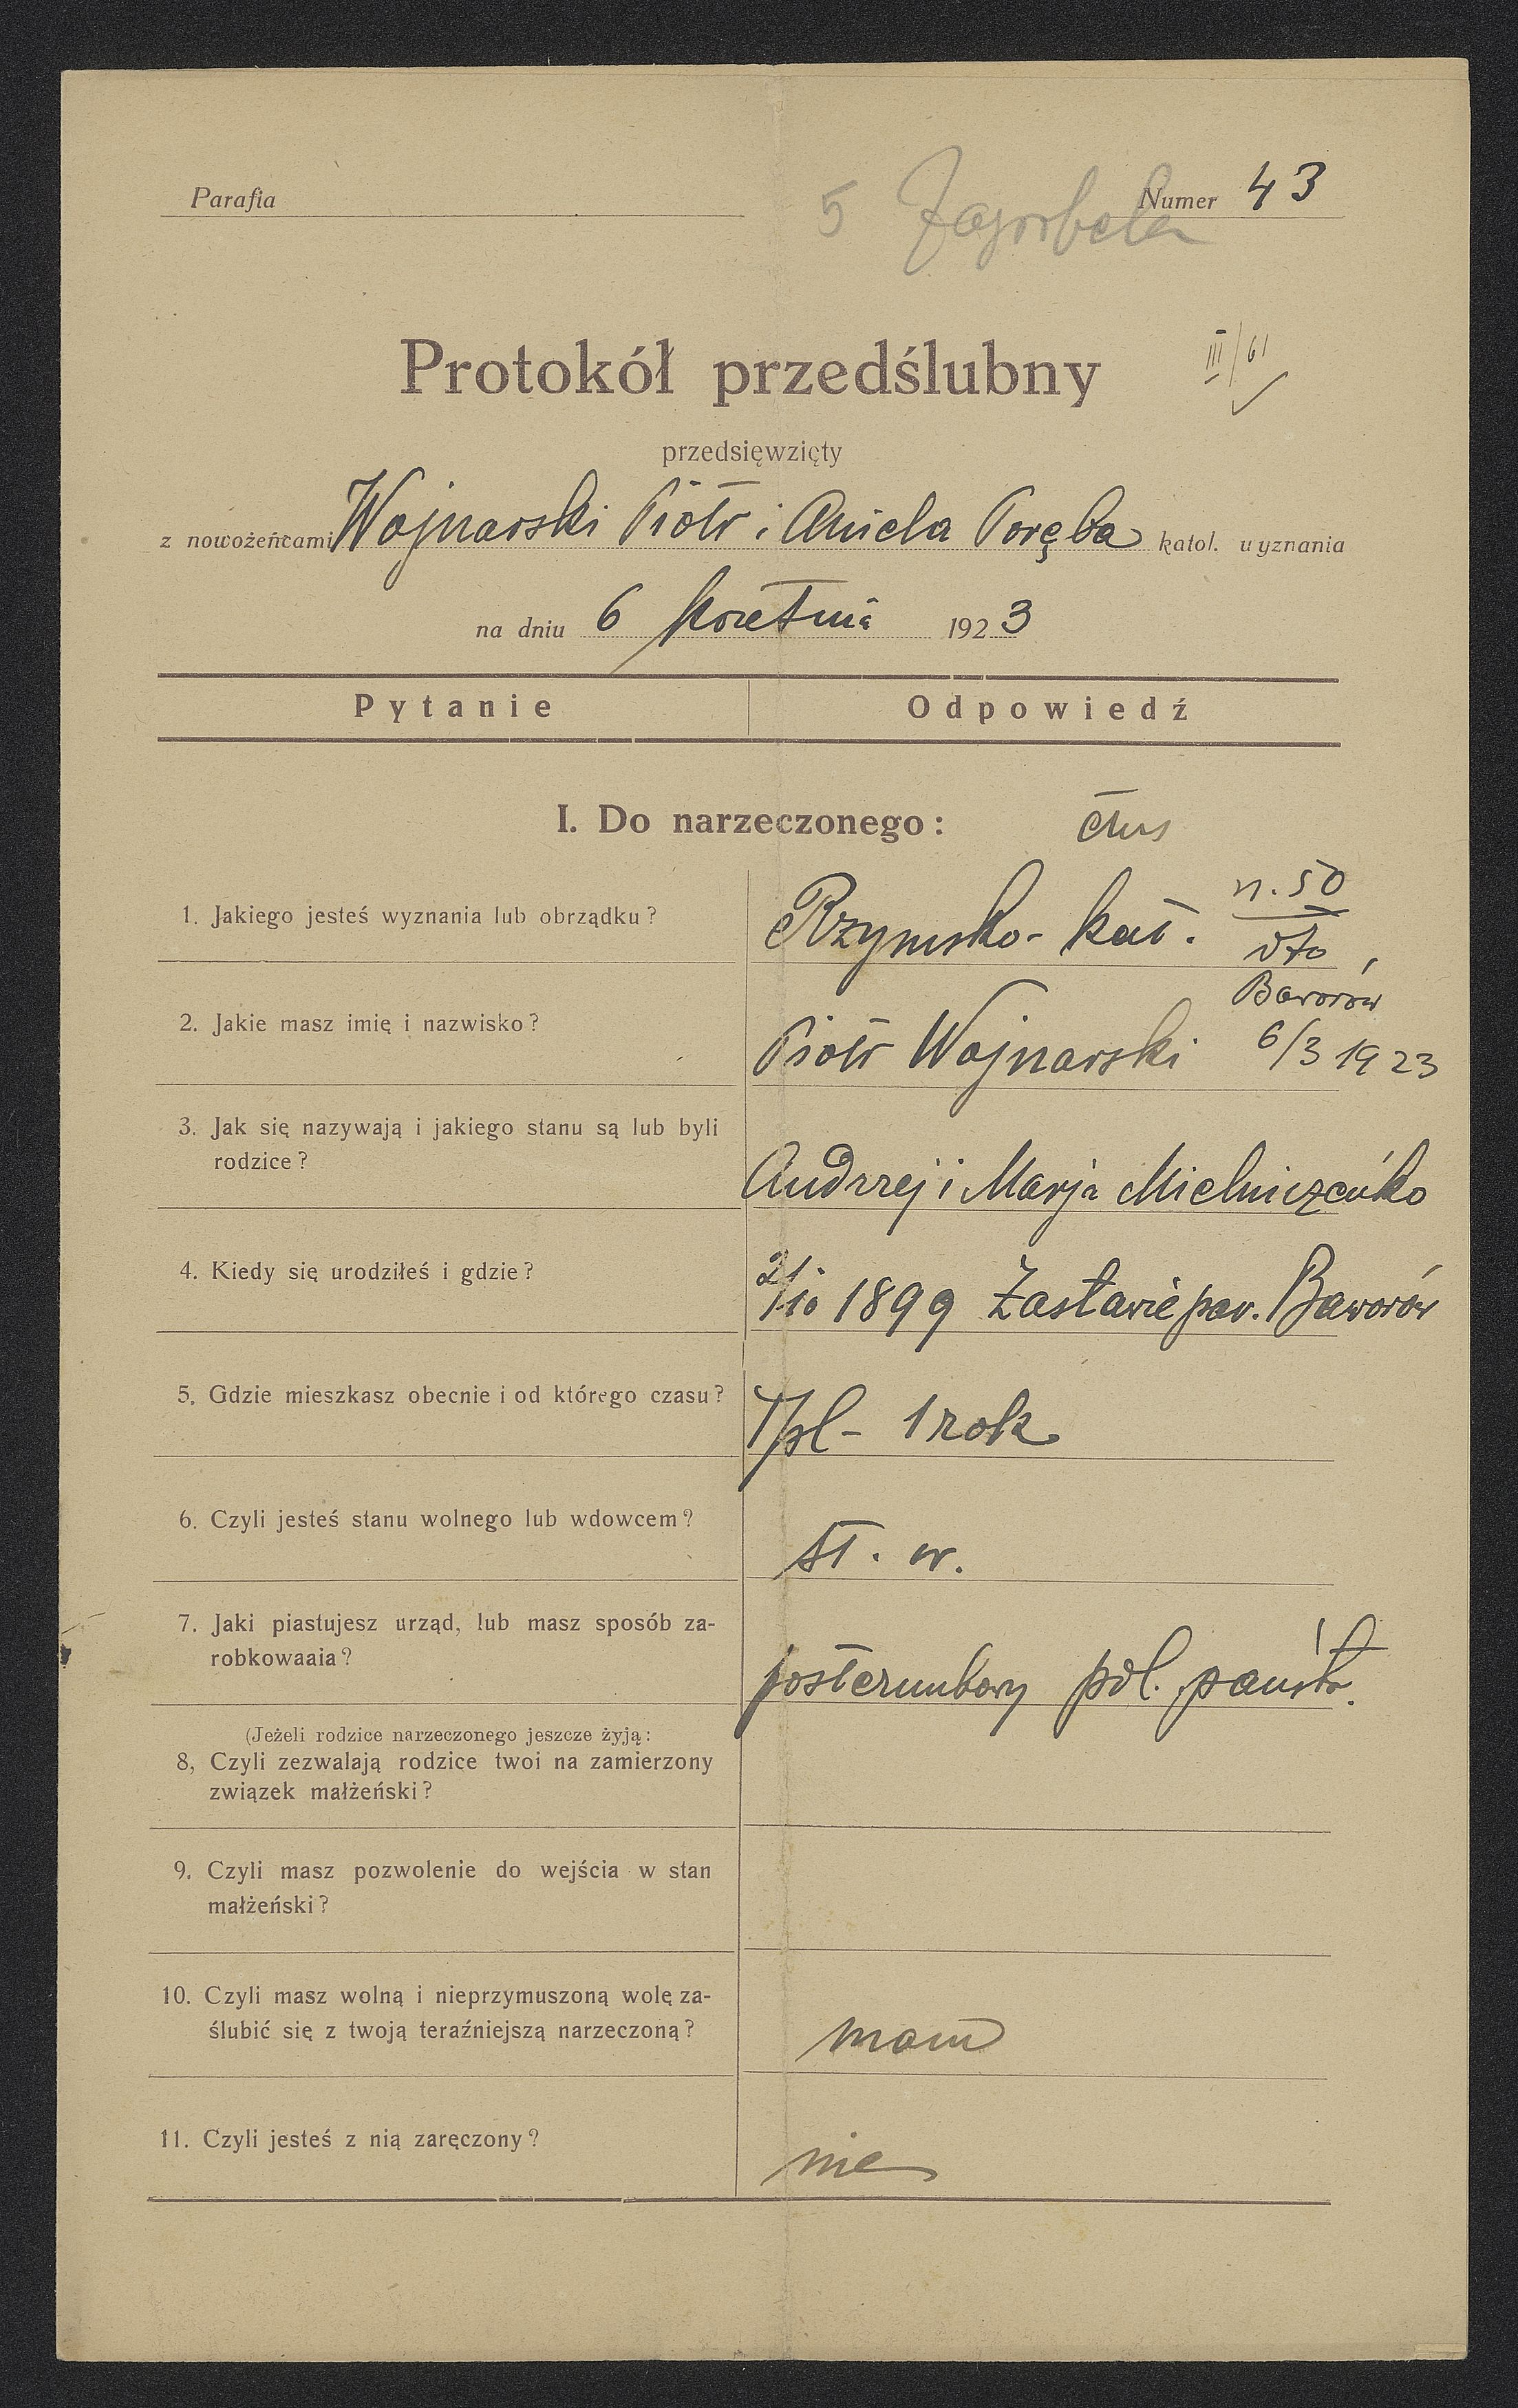 Parafia
5 Zagrobela
Numer 43
Protokół przedślubny
III/61
przedsięwzięty
z nowożeńcami Wojnarski Piotr i Aniela Poręba katol. wyznania
na dniu 6 kwietnia 1923
Pytanie Odpowiedź
I. Do narzeczonego:
1. Jakiego jesteś wyznania lub obrządku? Rzymsko-kat.
n. 50
dto
Baworów
6/3 1923
2. Jakie masz imię i nazwisko? Piotr Wojnarski
3. Jak się nazywają i jakiego stanu są lub byli
rodzice? Andrzej i Marja Mielniczeńko
4. Kiedy się urodziłeś i gdzie? 21/10 1899 Zastawie par. Baworów
5. Gdzie mieszkasz obecnie i od którego czasu? T/pl - 1 rok
6. Czyli jesteś stanu wolnego lub wdowcem? st. w.
7. Jaki piastujesz urząd, lub masz sposób za-
robkowaaia? posterunkowy pol. państw.
(Jeżeli rodzice narzeczonego jeszcze żyją:
8, Czyli zezwalają rodzice twoi na zamierzony
związek małżeński?
9. Czyli masz pozwolenie do wejścia w stan
małżeński?
10. Czyli masz wolną i nieprzymuszoną wolę za-
ślubić się z twoją teraźniejszą narzeczoną? mam
11. Czyli jesteś z nią zaręczony? nie